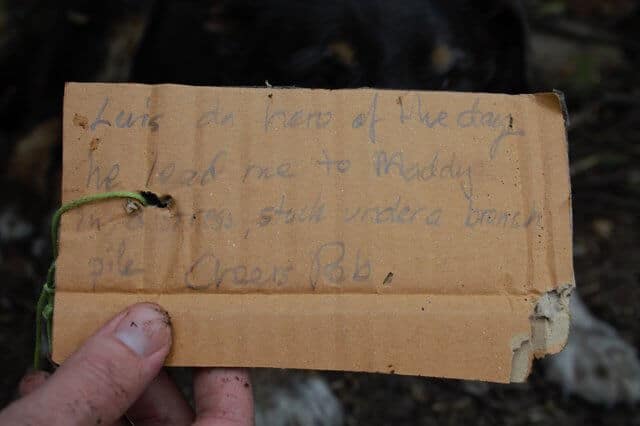 Luis da hero of the day
he lead me to Maddy
in distress, stuck under a branch
pile Cheers Rob.